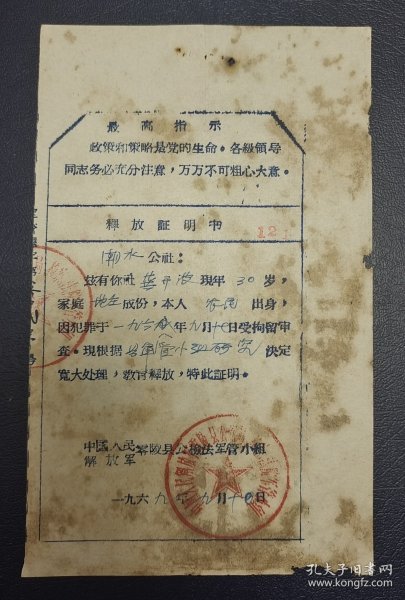 最高指示
政策和策略是党的生命,各级领导
同志务必充分注意,万万不可粗心大意。
释放証明书
12
潮水公社:
兹有你社 现年30岁,
家庭地主成份,本人农民出身,
因犯罪于一九六八年九月十日受拘留审
查。现根据县军管小组研究决定
宽大处理,教育释放,特此証明。
中國人民
解放军
零陵县公检法军管小组
一九六九年九月十七日
孔夫子旧书网
www.kongfz.com